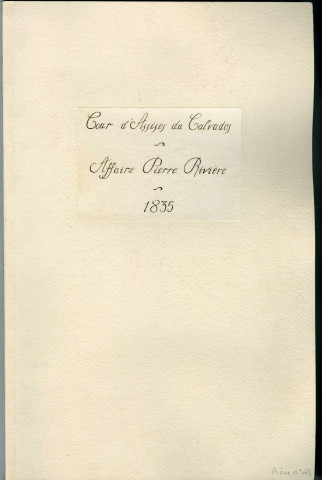 Cour d'Assises du Calvados
~
Affaire Pierre Rivière
~
1835
Pièce n°